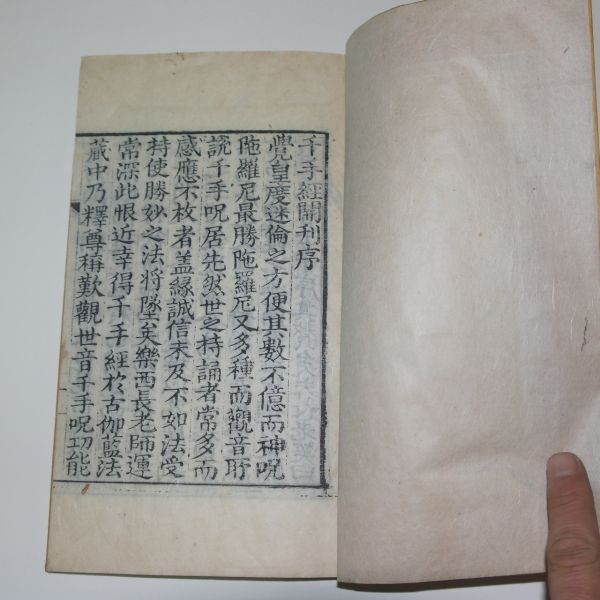 千手經開刊序
覺皇度迷倫之方便其數不億而神呪
陁羅尼最勝陁羅尼又多種而觀音所
說千手呪居先然世之持誦者常多而
感應不枚者盖緣誠信未及不如法受
持使勝妙之法將墜矣樂西長老師運
常深此恨近幸得千手經於古伽藍法
藏中乃釋尊稱歎觀世音千手呪功能